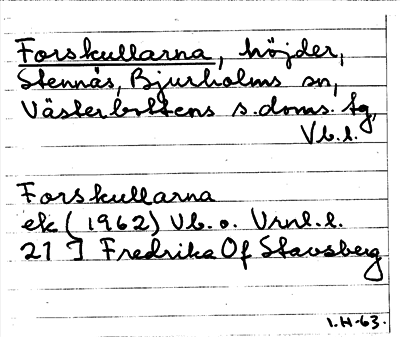 Forskullarna, höjder,
Stennäs, Bjurholms sn,
Västerbottens s.doms. tg,
Vb.l.
Forskullarna
ek (1962) Vb. o. Vrnl. l.
21 J Fredrika Of Stavsberg
I.H-63.